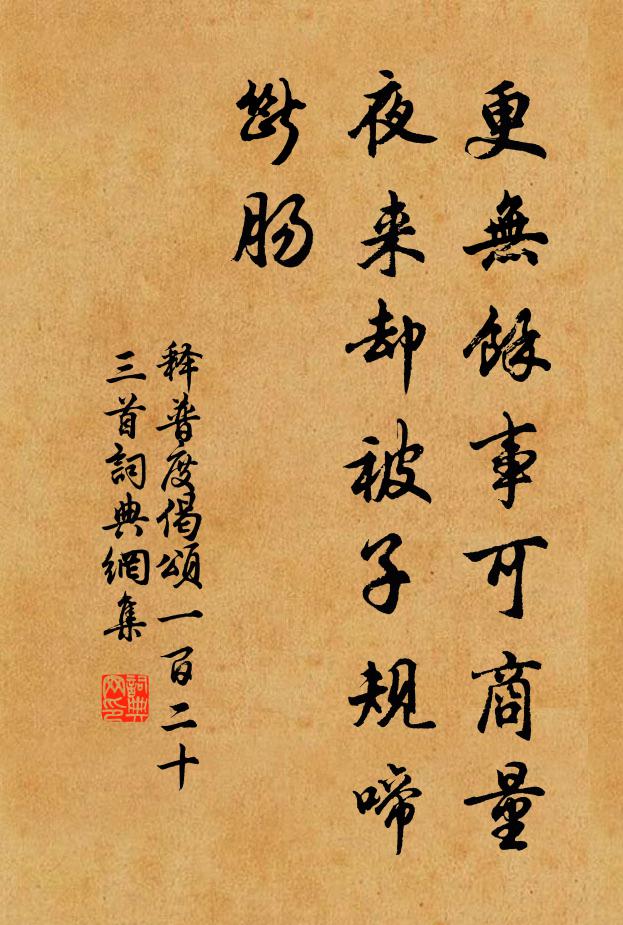 更無餘事可商量
夜来却被子規啼
斷腸
释普度偈頌一百二十
三首詞典網集
詞典網印